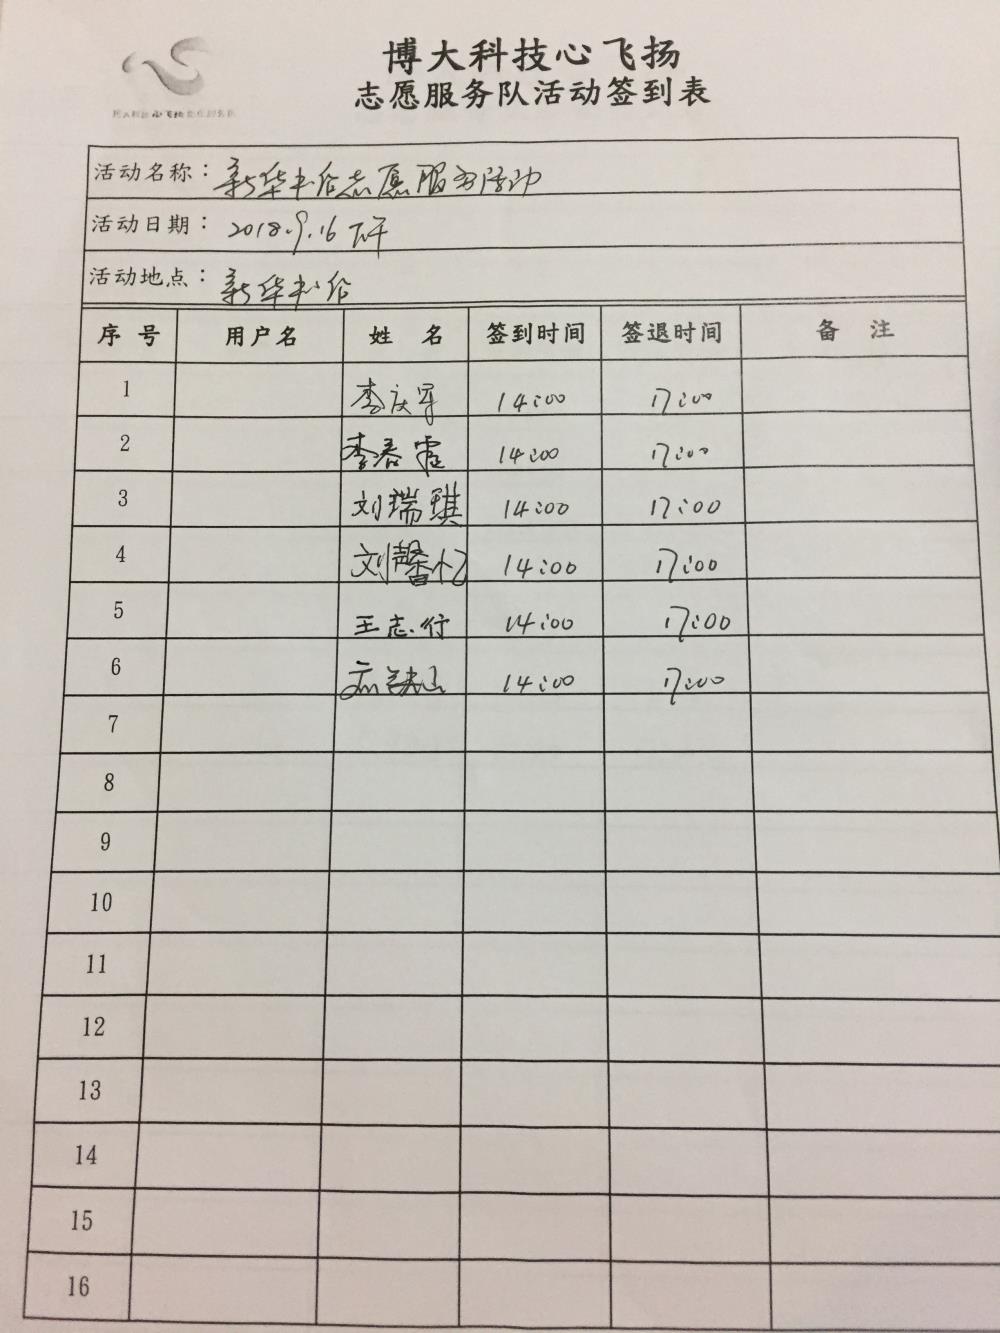 博大科技心飞扬
志愿服务队活动签到表
心飞扬
活动名称：新华书店志愿服务活动
活动日期：2018.9.16 下午
活动地点：新华书店
序号 用户名 姓名 签到时间 签退时间 备注
1 李庆军 14:00 17:00
2 李春霞 14:00 17:00
3 刘瑞琪 14:00 17:00
4 刘馨忆 14:00 17:00
5 王志行 14:00 17:00
6 14:00 17:00
7
8
9
10
11
12
13
14
15
16